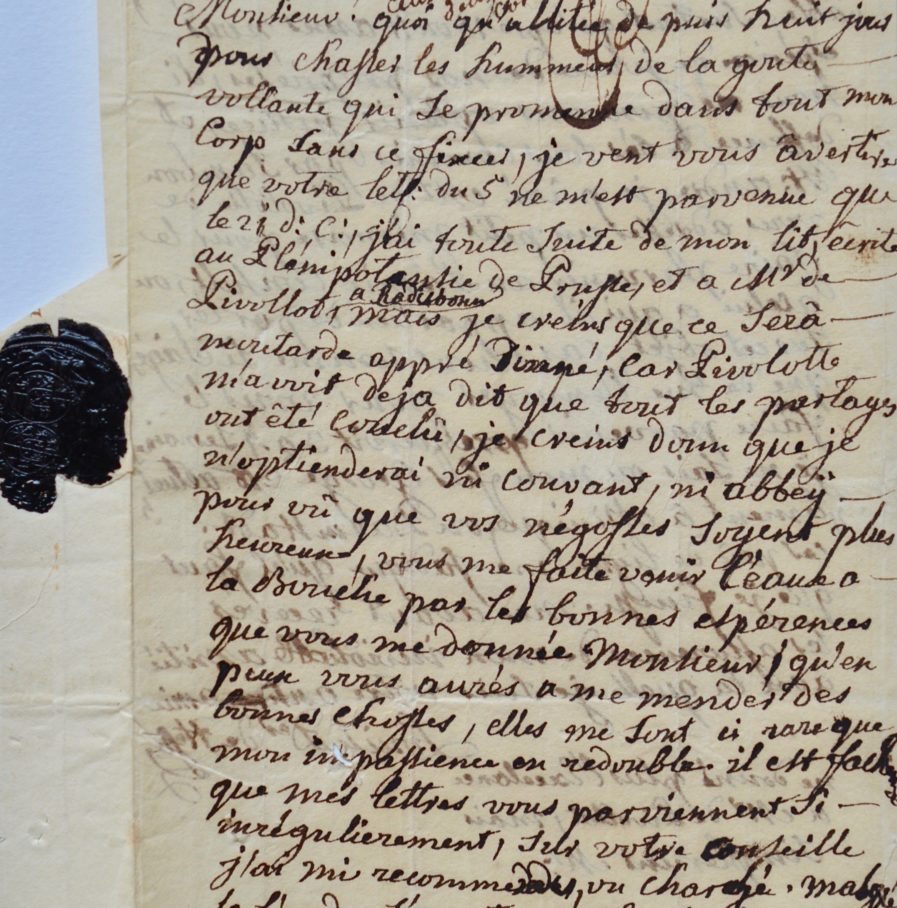 Monsieur! quoi qu'allitée de puis huit jours
pour chasser les hummeurs de la goute
vollante qui se promenne dans tout mon
Corp sans ce fixer, je vent vous avertire
que votre lett: du 5 ne m'est parvenue que
le d: C:, j'ai toute suite de mon lit, écrite
au Plénipotantie de Prusse, et a Mr de
a Radisbonne
Pivollot, mais je creins que ce serâ
moutarde appré Dinné, Car Pivolotte
m'avoit deja dit que tout les partages
ont été Conclû, je creins donn que je
n'optienderai ni couvant, ni abbeÿ
pour vû que vos négosses soyent plus
heureux, vous me faite venir l'eaux a
la Bouche par les bonnes espérences
que vous me donnée Monsieur, qu'en
peux vous aurés a me mender des
bonnes chosses, elles me sont si rare que
mon impassience en redouble. il est fach
que mes lettres vous parviennent si
inrégulierement, sur votre conseille
j'ai mi recommendes, ou chargé. malgré